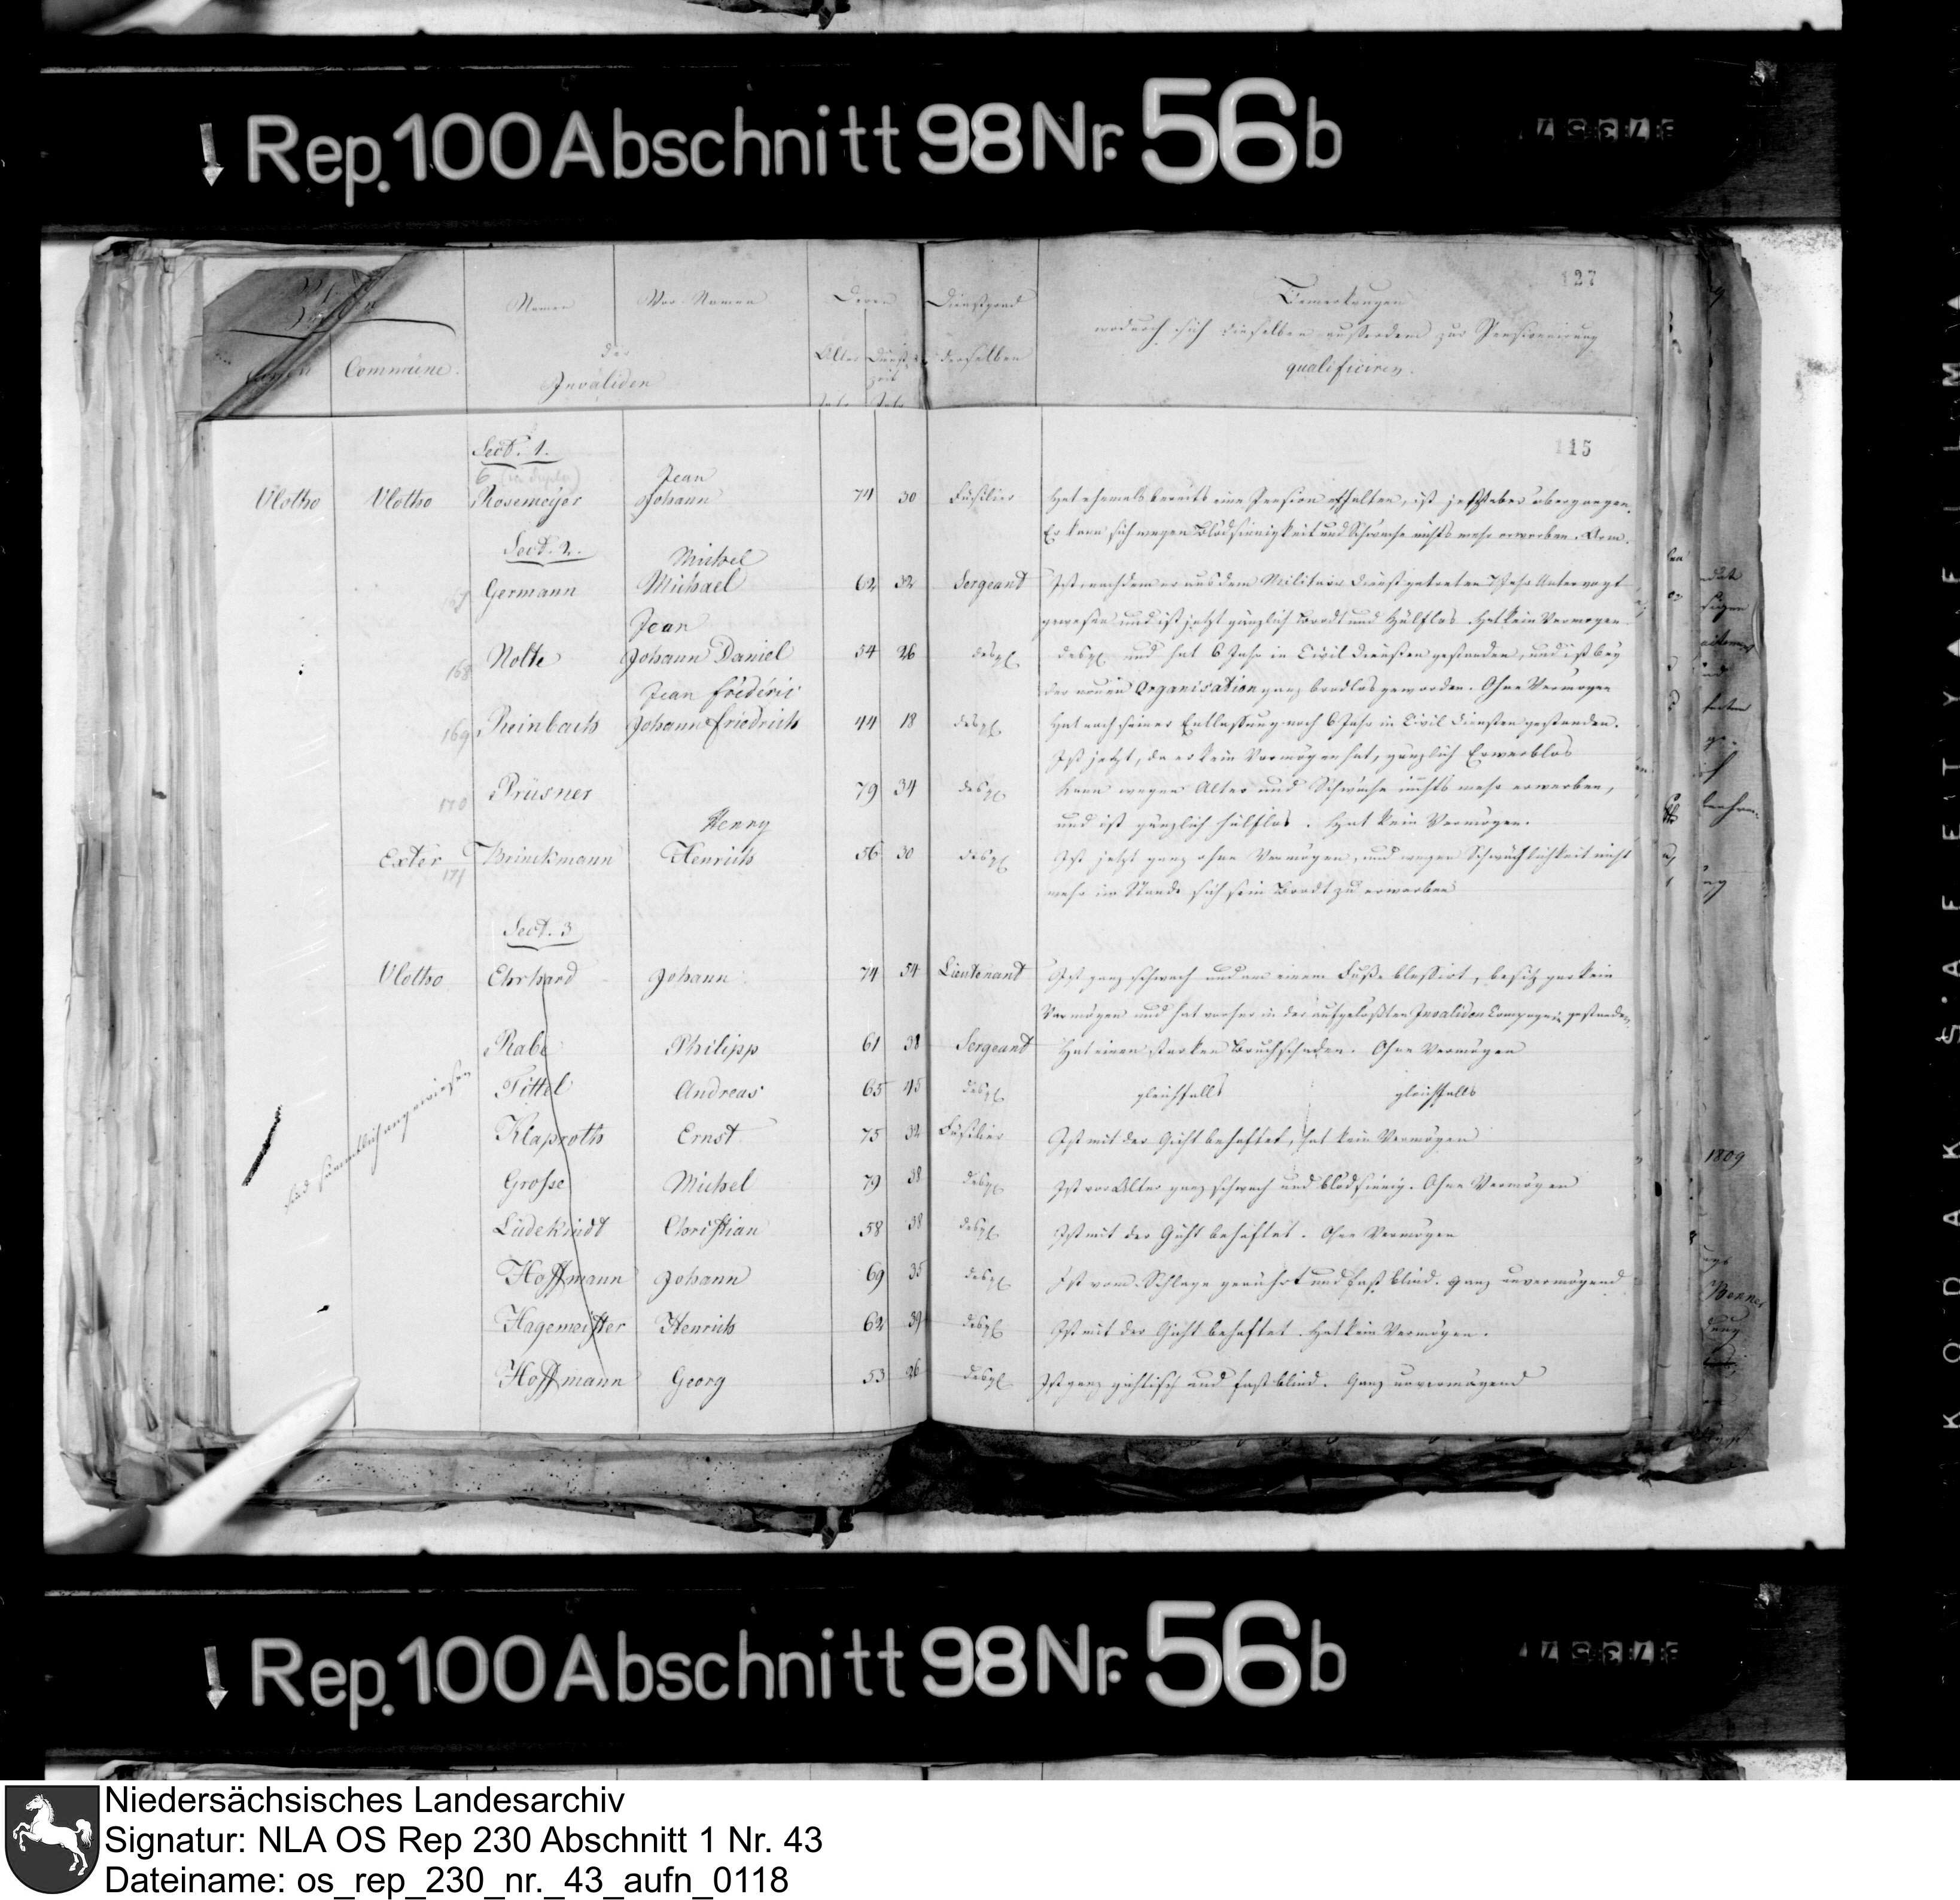 Rep. 100 Abschnitt 98 Nr. 56 b
127
Namen Vor-Namen Deren Dienstgrad Bemerkungen
wodurch sich dieselben außerdem zur Pensionirung
Commune. der Invaliden Alter Dienstzeit derselben qualificiren.
115
Sect. 1.
6
Jean
Vlotho Vlotho Rosemeyer Johann 74 30 Füsilier Hat ehemals bereits eine Pension erhalten, ist jetzt aber übergangen.
Er kann sich wegen Blödsinnigkeit und Schwäche nichts mehr erwerben. Arm.
Sect. 2.
Michel
Germann Michael 62 32 Sergeant Ist, nachdem er aus dem Militair Dienst getreten 7 Jahr Untervogt
gewesen und ist jetzt gänzlich Brodt und Hülflos. Hat kein Vermögen
Jean
168 Nolte Johann Daniel 54 26 desgl. desgl. und hat 6 Jahr in Civil Diensten gestanden, und ist bey
der neuen Organisation ganz brodlos geworden. Ohne Vermögen
Jean Fréderic
169 Reinbach Johann Friedrich 44 18 desgl. Hat nach seiner Entlassung noch 6 Jahr in Civil Diensten gestanden.
Ist jetzt, da er kein Vermögen hat, gänzlich Erwerblos
170 Prüsner 79 34 desgl. Kann wegen Alter und Schwäche nichts mehr erwerben,
und ist gänzlich hülflos. Hat kein Vermögen.
Henry
Exter 171 Brinckmann Henrich 56 30 desgl. Ist jetzt ganz ohne Vermögen, und wegen Schwächlichkeit nicht
mehr im Stande sich sein Brodt zu erwerben
Sect. 3
Vlotho Ehrhard Johann 74 54 Lieutenant Ist ganz schwach und am einem Fuße blessirt, besitz gar kein
Vermögen und hat vorher in der aufgelößten Invaliden Compagnie gestanden.
Rabe Philipp 61 38 Sergeant Hat einen starken Bruchschaden. Ohne Vermögen
sind sämmtlich angewiesen
Tittel Andreas 65 45 desgl. gleichfalls gleichfalls
Klaproth Ernst 75 32 Füsilier Ist mit der Gicht behaftet, hat kein Vermögen
Große Michel 79 38 desgl. Ist vor Alter ganz schwach und blödsinnig. Ohne Vermögen
Lüdekindt Christian 58 38 desgl. Ist mit der Gicht behaftet. Ohne Vermögen
Hoffmann Johann 69 35 desgl. Ist vom Schlage gerührt und fast blind. ganz unvermögend
Hagemeister Henrich 62 39 desgl. Ist mit der Gicht behaftet. Hat kein Vermögen.
Hoffmann Georg 53 26 desgl. Ist ganz gichtisch und fast blind. Ganz unvermögend
1809
Rep. 100 Abschnitt 98 Nr. 56 b
KODAK SAFETY FILM
Niedersächsisches Landesarchiv
Signatur: NLA OS Rep 230 Abschnitt 1 Nr. 43
Dateiname: os_rep_230_nr._43_aufn_0118